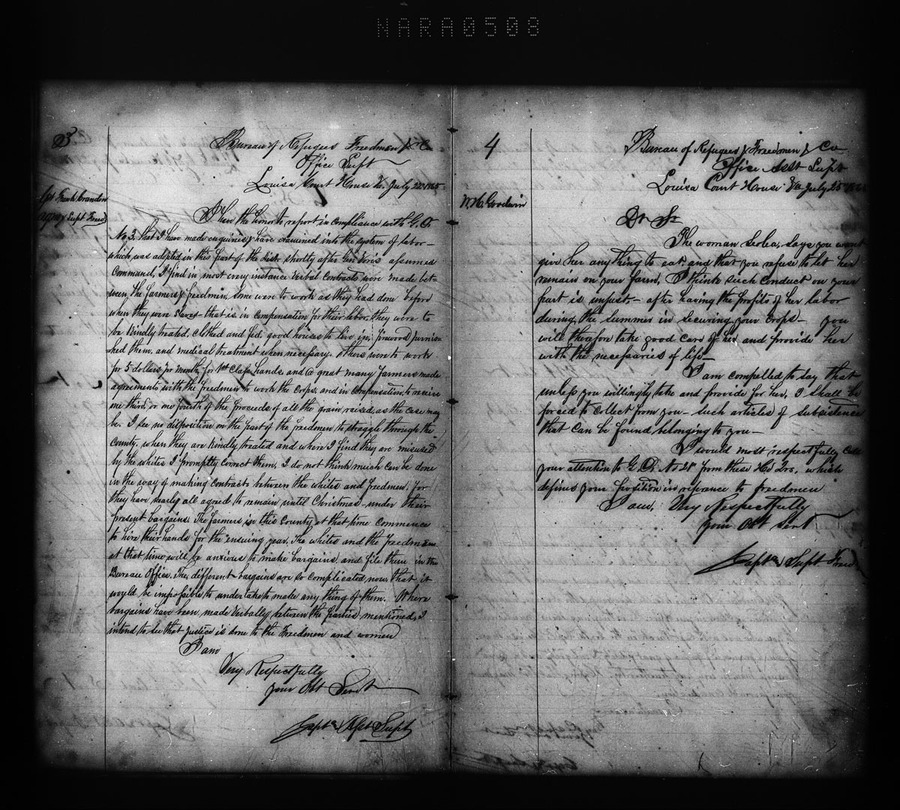 NARA0508
3
Bureau of Refugees Freedmen & C
Office Supt
Louisa Court House Va July 25 1865
Cpt Frank Crandon
Supt Freed
I have the honor to report in compliance with G.O.
No 3, that I have made enquiries & have examined into the system of labor
which was adopted in this part of the shortly after assumed
Command, I find in most every instance Verbal Contracts were made bet-
ween the Farmers & Freedmen, Some went to work as they had done before
when they were Slaves - that is in compensation for their labor, they were to
be kindly treated, clothed and fed, good houses to live in, firewood furnis
hed them, and medical treatment when necessary. Others went to work
for 5 dollars pr month, for 1st Class hands, and a great many Farmers made
agreements with the Freedmen to work the Corps, and in Compensation to receive
one third or one fourth of the proceeds of all the grain raised, as the case may
be. I see no disposition on the part of the Freedmen to straggle through the
County, when they are kindly treated and where I find they are misused
by the whites I promptly correct them, I do not think much can be done
in the way of making Contracts between the whites and Freedmen, for
they have nearly all agreed to remain until Christmas under their
present bargains. The farmers in this County at that time commence
to hire their hands for the ensuing year, The whites and the Freedmen
at that time will be anxious to make bargains, and file them in the
Bureau Office. The different bargains are so complicated now that it
would be impossible to undertake to make any thing of them. Where
bargains have been made Verbally between the Parties mentioned, I
intend to see that justice is done to the Freedmen and women
I am
Very Respectfully
Your Obt Servt
Capt & Asst Supt
4
Bureau of Refugees, Freedmen, & Co
Office Asst Supt
Louisa Court House Va July 25
W.H. Goodwin
Dr Sir
The woman says you wont
give her any thing to eat and that you refuse to let her
remain on your farm, I think such conduct on your
part is unjust - after having the profits of her labor
during the summer in securing your crops - you
will therefore take good care of her and provide her
with the necessaries of life -
I am compelled to day that
unless you willingly take and provide for her, I shall be
forced to collect from you - such articles of subsistence
that can be found belonging to you -
I would most respectfully call
your attention to G.O. No from these Hd Qrs, which
defines your position in reference to freedmen
I am, Very Respectfully
Your Obt Servt
Capt & Supt Freed